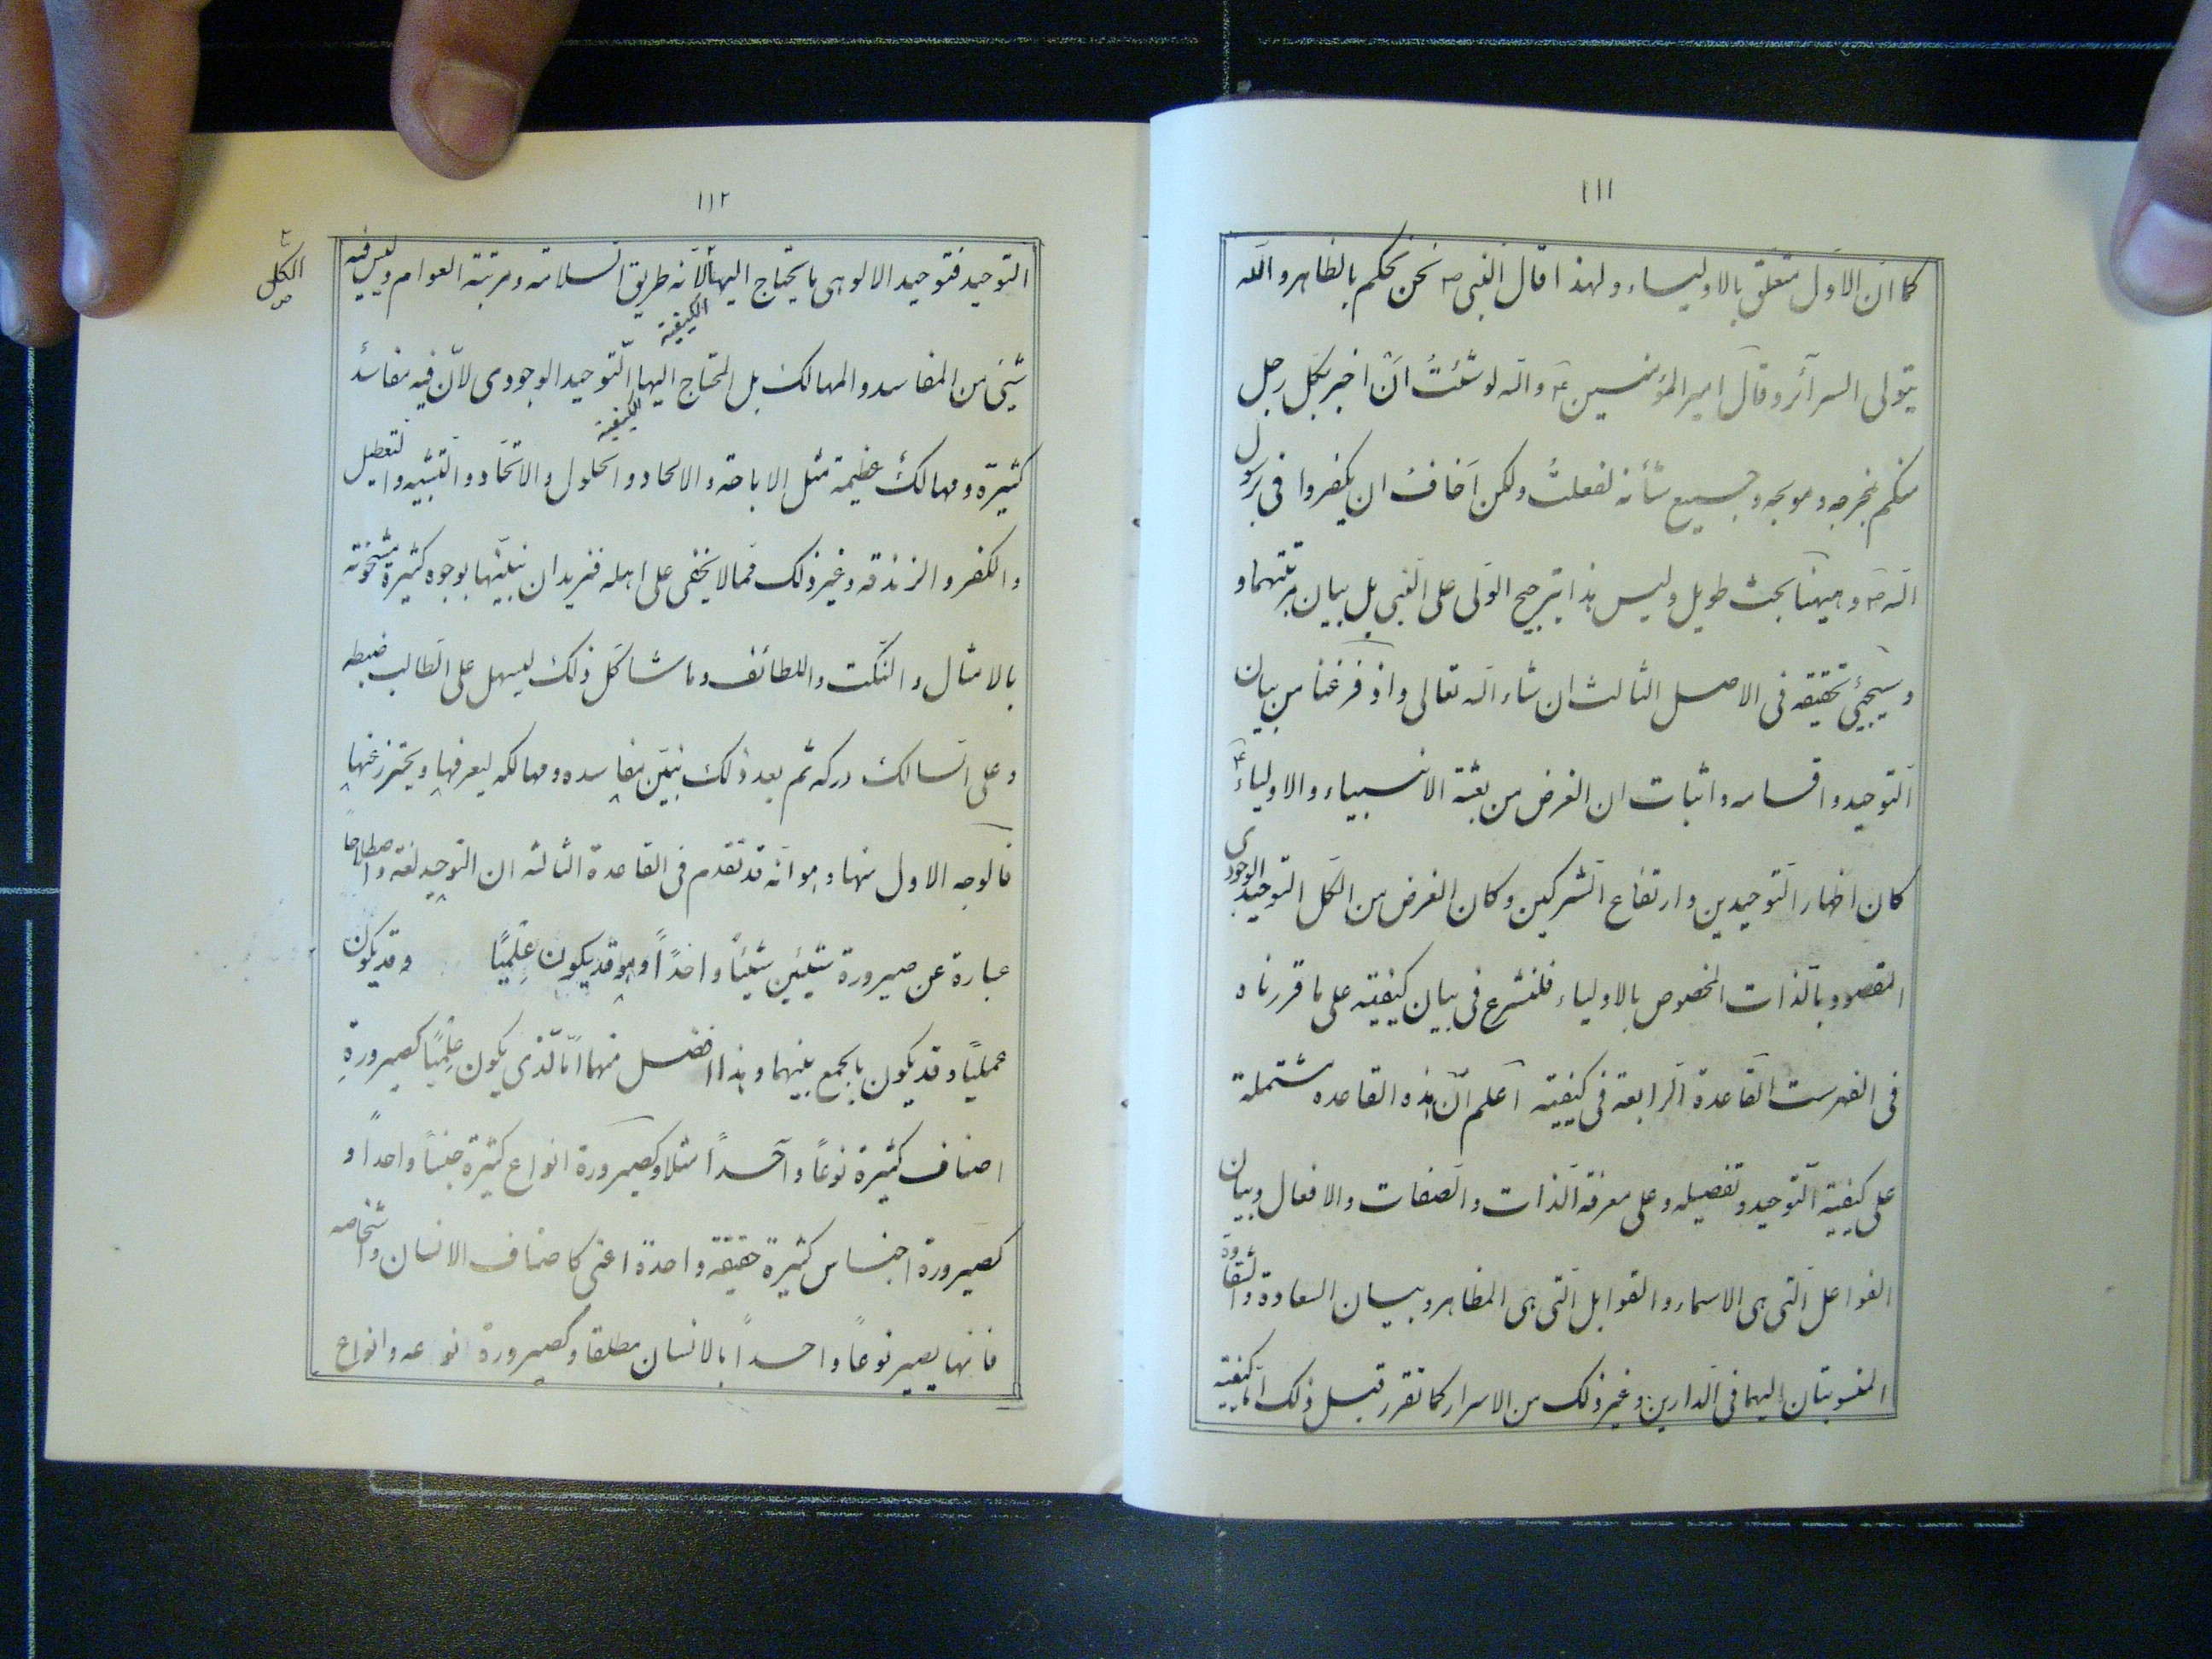 ١١١
كما ان الاول متعلق بالاولياء ولهذا قال النبى ص نحن نحكم بالظاهر والله
يتولى السرآئر وقال امير المؤمنين ع والله لو شئتُ انْ اخبر بكل رجل
منكم بمخرجه ومولجه وجميع شأنه لفعلتُ ولكن اَخافُ ان يكفروا فى برسول
الله ص وهيهنا بحث طويل وليس هذا بترجيح الولى على النبى بل بيان مرتبتهما و
وسيجيئ تحقيقه فى الاصل الثالث ان شاء الله تعالى واذ فرغنا من بيان
التوحيد واقسامه واثبات ان الغرض من بعثة الانبياء والاولياء ع
كان اظهار التوحيدين وارتفاع الشركين وكان الغرض من الكل التوحيد الوجودى
المقصود بالذات المخصوص بالاولياء فلنشرع فى بيان كيفيته على ما قررناه
فى الفهرست القاعدة الرابعة فى كيفيته اعلم انّ هذه القاعده مشتملة
على كيفية التوحيد وتفصيله وعلى معرفة الذات والصفات والافعال وبيان
الفواعل التى هى الاسماء والقوابل التى هى المظاهر وبيان السعادة والشقاوة
المنسوبتان اليهما فى الدارين وغير ذلك من الاسرار كما تقرر قبل ذلك اما كيفية
١١٢
التوحيد فتوحيد الالوهى ما يحتاج اليها لانه طريق السلامة ومرتبة العوام وليس فيه
الكيفية
الكل
شيئ من المفاسد والمهالك بل المحتاج اليها التوحيد الوجودى لانّ فيه مفاسدُ
الكيفية
كثيرة ومهالكُ عظيمة مثل الاباحة والالحاد والحلول والاتحاد والتشبيه والتعطيل
والكفر والزندقه وغير ذلك مما لا يخفى على اهله فنريد ان نبينها بوجوه كثيرة مشحونة
بالامثال والنكت واللطائف وما شاكل ذلك ليسهل على الطالب ضبطه
وعلى السالك دركه ثم بعد ذلك نبين مفاسده ومهالكه ليعرفها ويحترز عنها
فالوجه الاول منها وهو انه قد تقدم فى القاعدة الثالثه ان التوحيد لغة واصطلاحاً
عبارة عن صيرورة شيئين شيئاً واحداً وهو قد يكون عِلْمِيًا وقد يكون
عمليًا وقد يكون بالجمع بينهما وهذا افضل منهما امّا الّذى يكون عِلْمِيًا كصيرورةِ
اصناف كثيرة نوعًا وآحداً مثلا وكصيرورة انواع كثيرة جنسًا واحداً و
كصيرورة اجناس كثيرة حقيقة واحدة اعنى كاصناف الانسان واشخاصه
فانها يصير نوعًا واحداً بالانسان مطلقا وكصيرورة انواعه وانواع